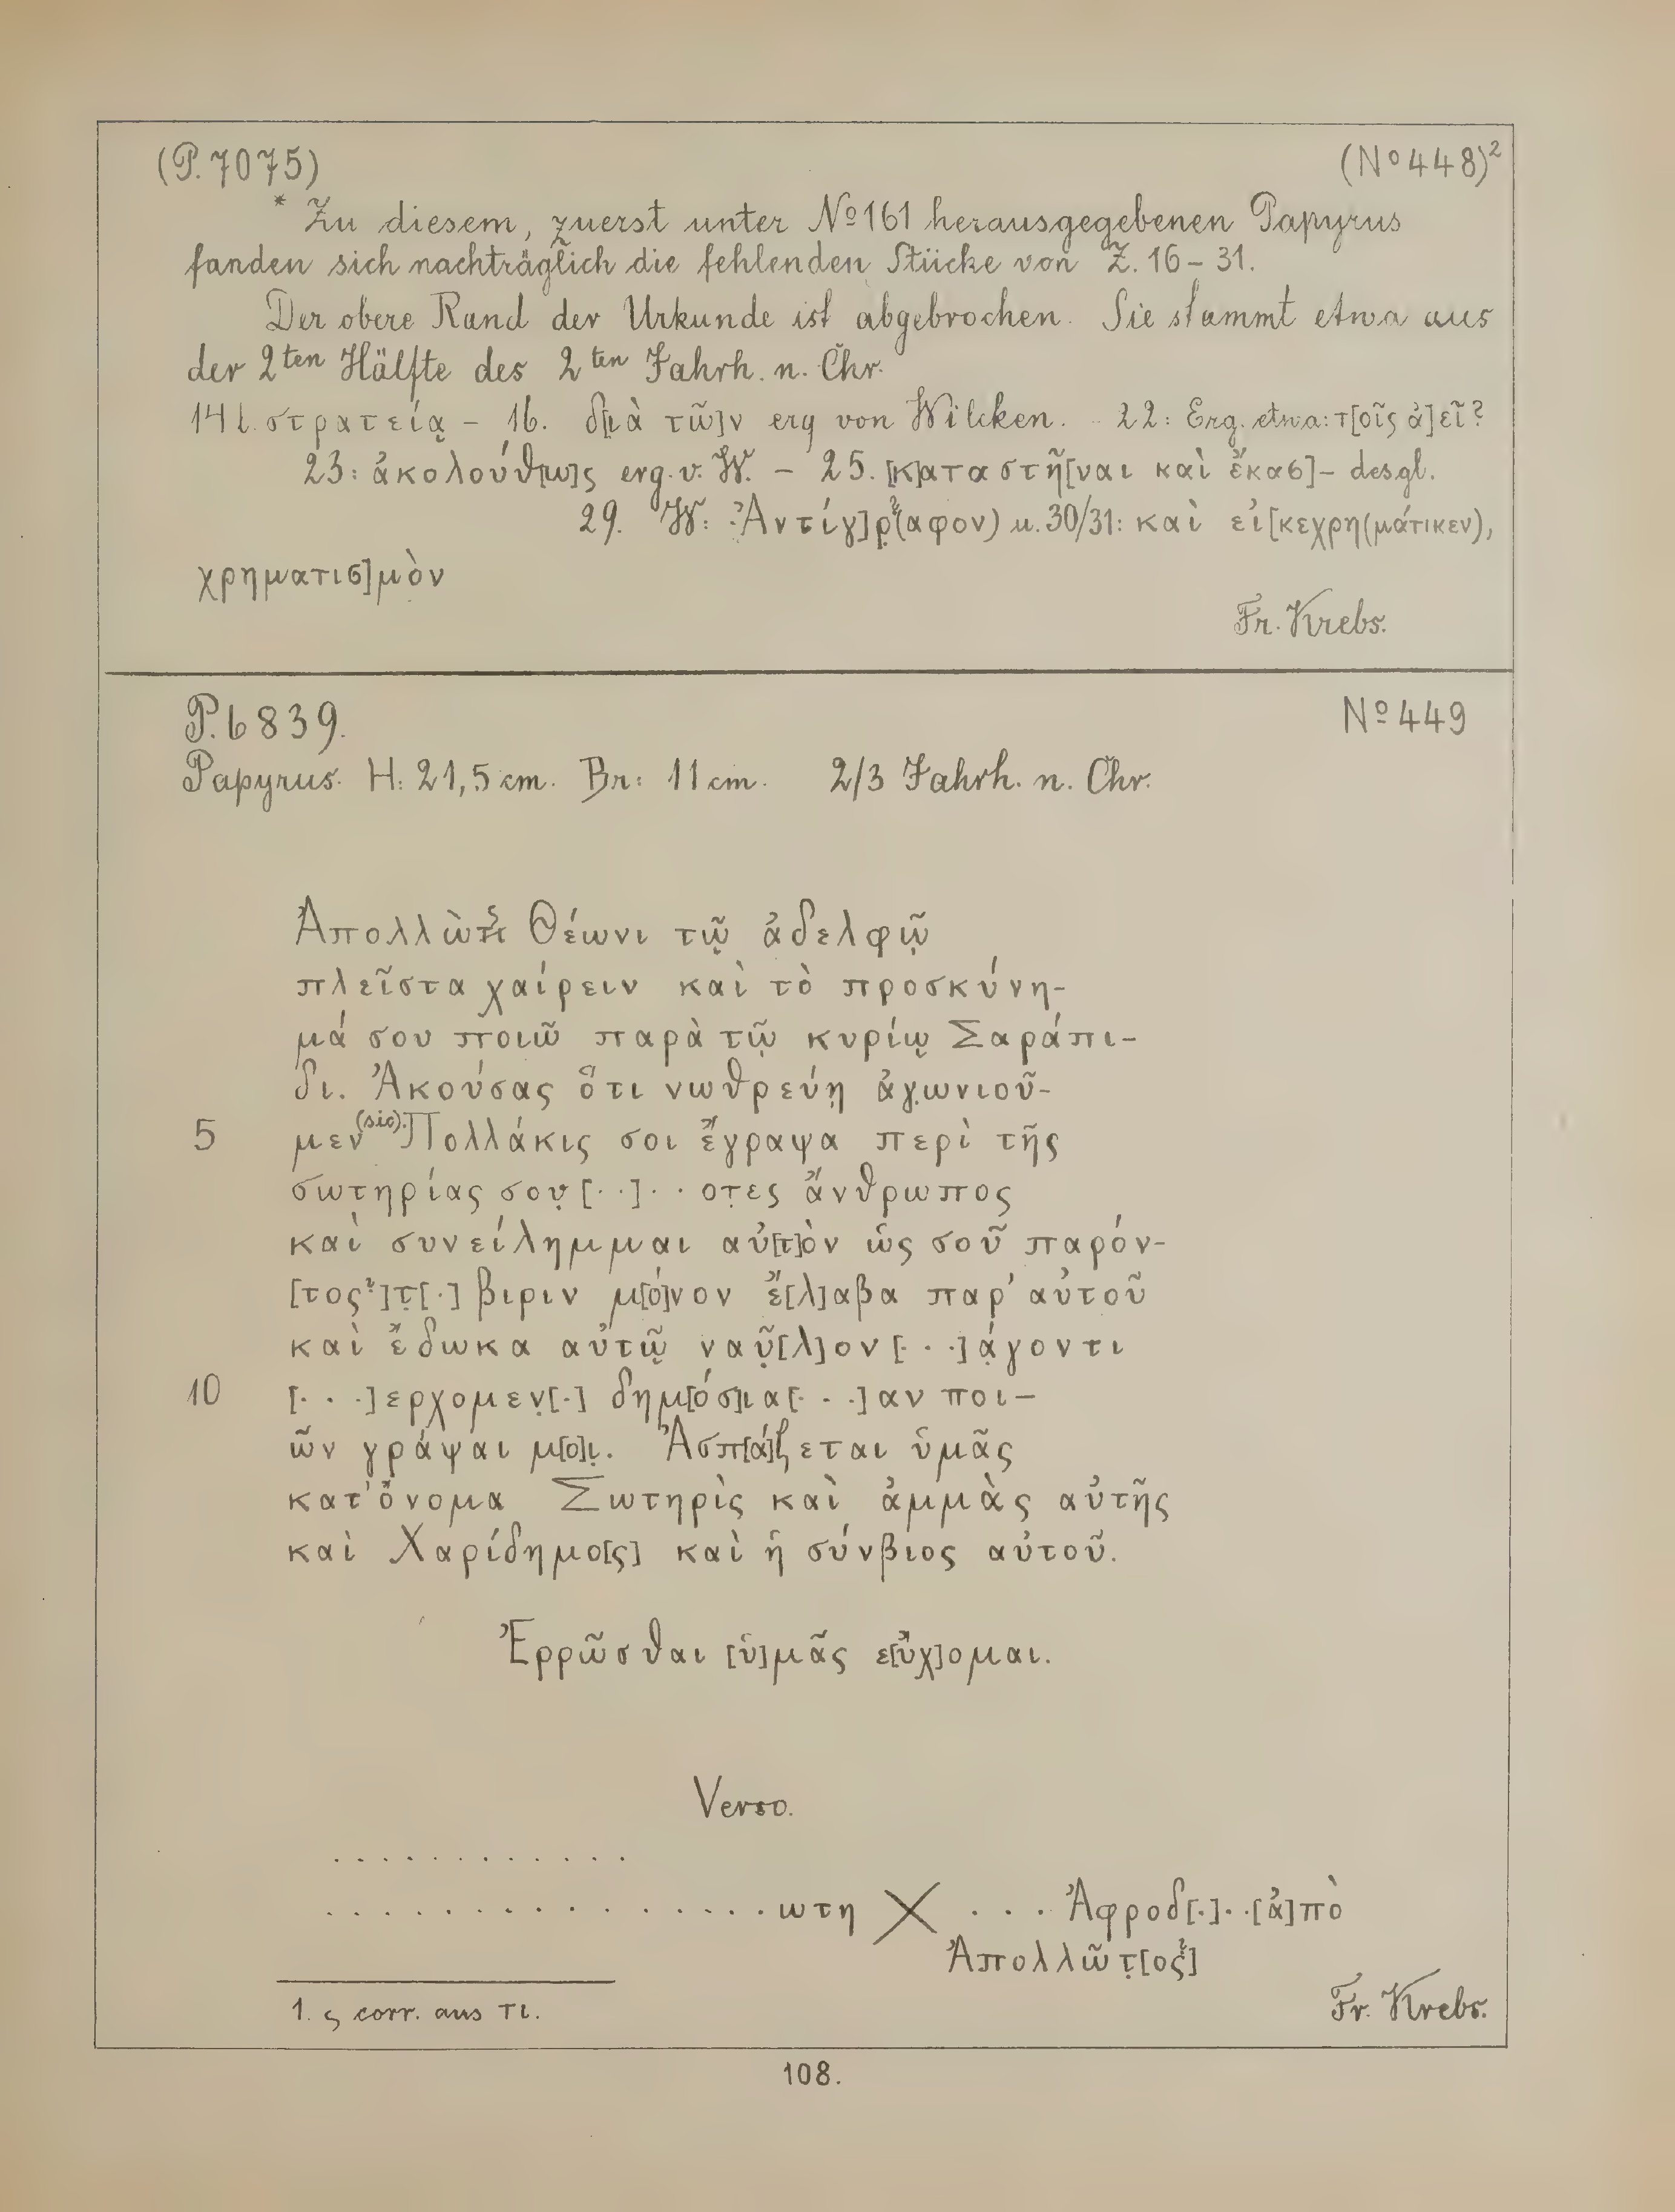 (P. 7075) (No 448)²
* Zu diesem, zuerst unter No 161 herausgegebenen Papyrus
fanden sich nachträglich die fehlenden Stücke von Z. 16 – 31.
Der obere Rand der Urkunde ist abgebrochen. Sie stammt etwa aus
der 2ten Hälfte des 2ten Jahrh. n. Chr.
14 l. στρατείᾳ – 16. δ[ιὰ τῶ]ν erg von Wilcken. – 22: Erg. etwa: τ[οῖς ἀ]εῖ?
23: ἀκολούθ[ω]ς erg. v. W. – 25. [κ]αταστῆ[ναι καὶ ἕκασ]– desgl.
29. W: Ἀντίγ]ρ̣?(αφον) u. 30/31: καὶ εἰ[κεχρη(μάτικεν),
χρηματισ]μὸν
Fr. Krebs.
P. 6839. No 449
Papyrus. H: 21,5 cm. Br: 11 cm. 2/3 Jahrh. n. Chr.
Ἀπολλὼς Θέωνι τῷ ἀδελφῷ
πλεῖστα χαίρειν καὶ τὸ προσκύνη-
μά σου ποιῶ παρὰ τῷ κυρίῳ Σαράπι-
δι. Ἀκούσας ὅτι νωθρεύῃ ἀγ̣ωνιοῦ-
5 μεν (sic). Πολλάκις σοι ἔγραψα περὶ τῆς
σωτηρίας σου̣ [· ·] · · οτ̣ες ἄνθρωπος
καὶ συνείλημμαι αὐ[τ]ὸν ὡς σοῦ παρόν-
[τος?]τ̣[·] βιριν μ[ό]νον ἔ[λ]αβα παρ' αὐτοῦ
καὶ ἔδωκα αὐτῷ ναῦ̣[λ]ον [· · ·]ά̣γοντι
10 [· · ·]ερχομεν̣[·] δημ[όσ]ια[· · ·]αν ποι-
ῶν γράψαι μ[ο]ι̣. Ἀσπ[ά]ζεται ὑμᾶς
κατ' ὄνομα Σωτηρὶς καὶ ἀμμὰς αὐτῆς
καὶ Χαρίδημο[ς] καὶ ἡ σύνβιος αὐτοῦ.
Ἐρρῶσθαι [ὑ]μᾶς ε[ὔχ]ομαι.
Verso.
. . . . . . . . . . . .
. . . . . . . . . . . . . . . . ωτη X . . . Ἀφροδ[·]· ·[ἀ]πὸ
Ἀπολλῶτ̣[ος?]
1. ς corr. aus τι.
Fr. Krebs.
108.